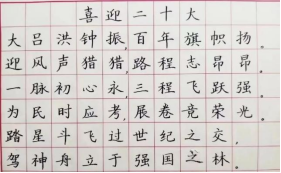 喜迎二十大
大吕洪钟振,百年旗帜扬。
迎风声猎猎,路程志昂昂。
一脉初心永,三程飞跃强。
为民时应考,展卷竞荣光。
踏星斗飞过世纪之交,
驾神舟立于强国之林。